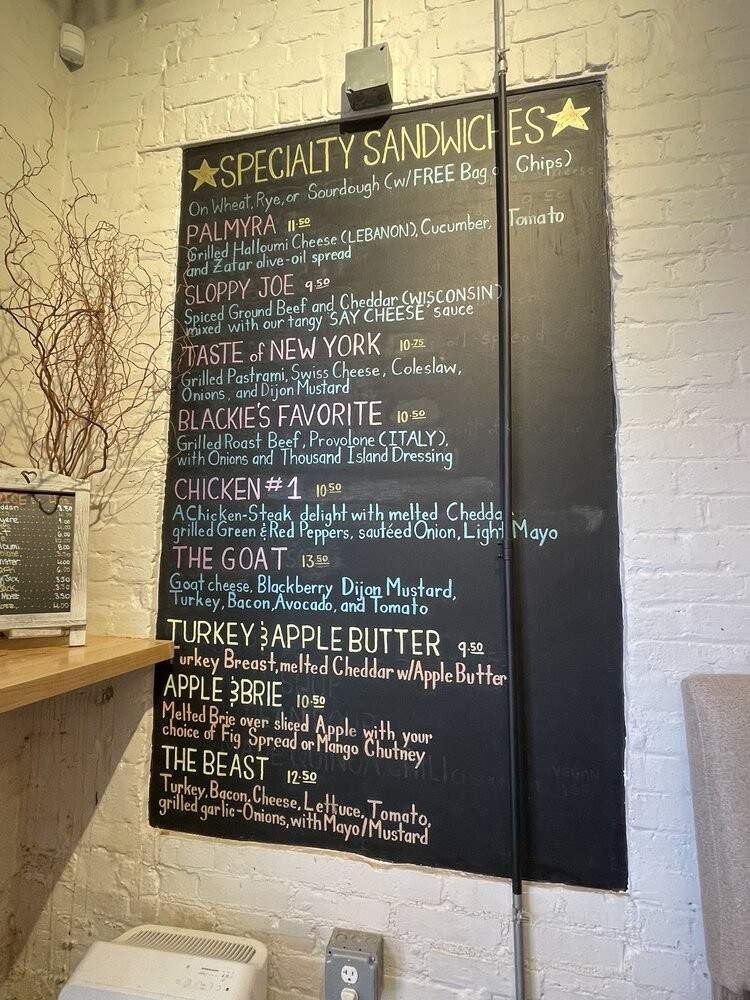 SPECIALTY SANDWICHES
On Wheat, Rye, or Sourdough (w/FREE Bag Chips)
PALMYRA 11.50
Grilled Halloumi Cheese (LEBANON), Cucumber, Tomato
and Zatar olive-oil spread
SLOPPY JOE 9.50
Spiced Ground Beef and Cheddar (WISCONSIN)
mixed with our tangy "SAY CHEESE" sauce
TASTE of NEW YORK 10.75
Grilled Pastrami, Swiss Cheese, Coleslaw,
Onions, and Dijon Mustard
BLACKIE'S FAVORITE 10.50
Grilled Roast Beef, Provolone (ITALY),
with Onions and Thousand Island Dressing
CHICKEN #1 10.50
A Chicken-Steak delight with melted Chedda
grilled Green & Red Peppers, sautéed Onion, Light Mayo
THE GOAT 13.50
Goat cheese, Blackberry Dijon Mustard,
Turkey, Bacon, Avocado, and Tomato
TURKEY & APPLE BUTTER 9.50
Turkey Breast, melted Cheddar w/Apple Butter
APPLE & BRIE 10.50
Melted Brie over sliced Apple with your
choice of Fig Spread or Mango Chutney
THE BEAST 12.50
Turkey, Bacon, Cheese, Lettuce, Tomato,
grilled garlic-Onions, with Mayo/Mustard